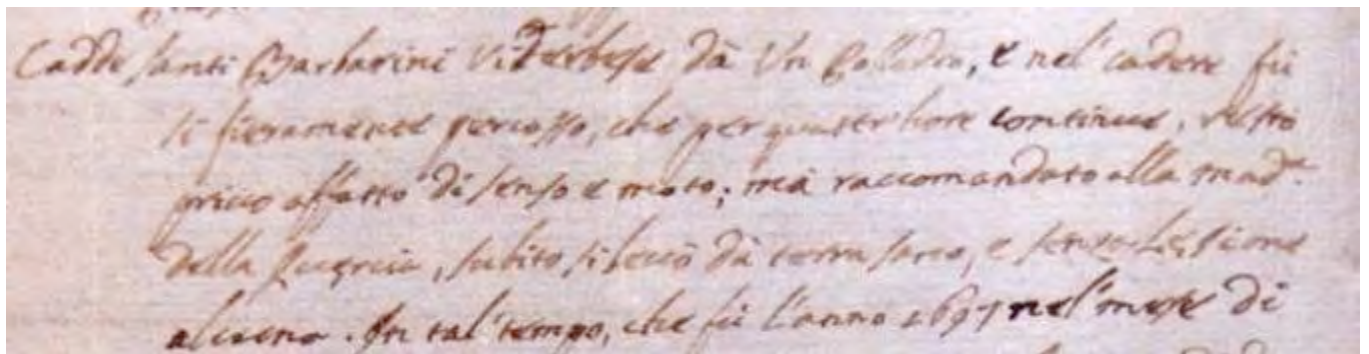 Cadde Santi Barbarini Viterbese dà Un Polledro, e nel' cadere fù
sì fieramente percosso, che per quatter hore continue, restò
privo affatto di senso e moto; mà raccomandato alla Mad.ª
della Quercia, subito si levò dà terra sano, e senza Lessione
alcuna. In tal' tempo, che fù l'anno 1697 nel' mese di